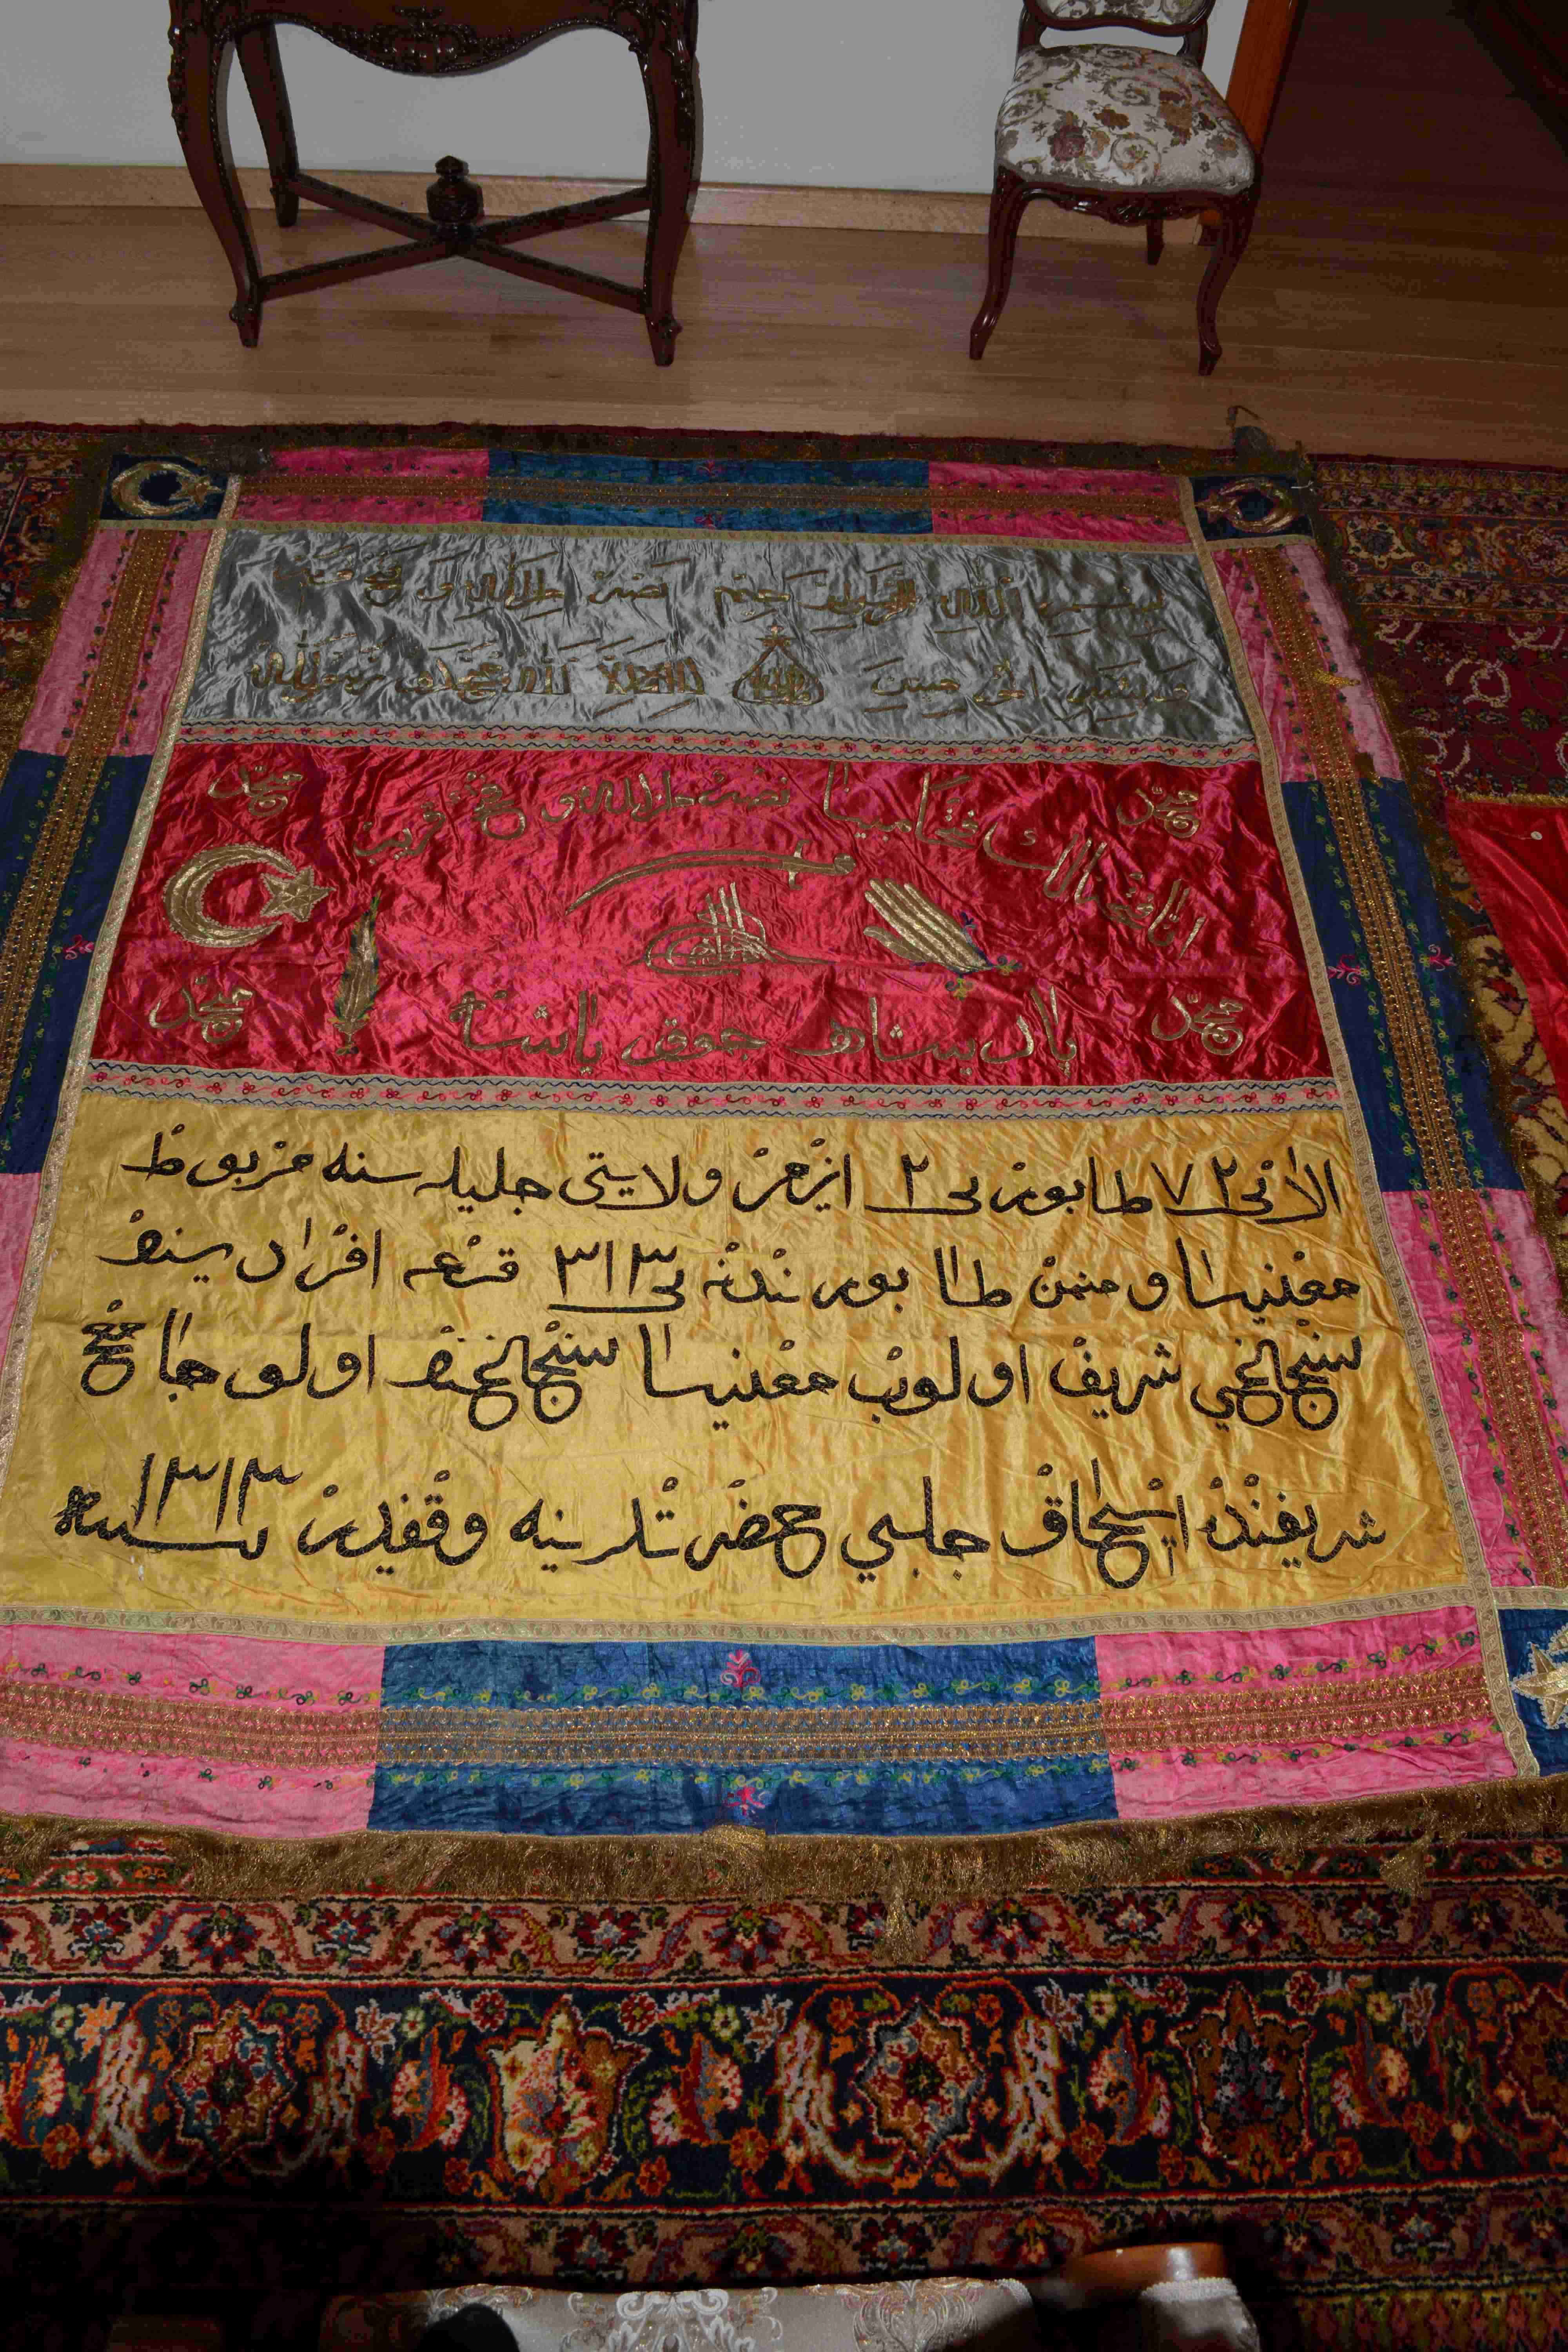 بسم الله الرحمن الرحيم نصر من الله و فتح
قريب
محمد رسول الله
محمد
محمد
انا فتحنا لك فتحا مبينا نصر من الله و فتح قريب
محمد
محمد
پادشاهم چوق ياشا
الاى ٧٢ طابورنى ٢ ازمر ولايتى جليله سنه مربوط
مغنيسا و منمن طابورندنه نى ٣١٣ قرعه افرادينڭ
سنجاغي شريف اولوب مغنيسا سنجاغنڭ اولو جامع
شريفنده اسحاق چلبي حضرتلرينه وقفدر سنه ١٣١٣